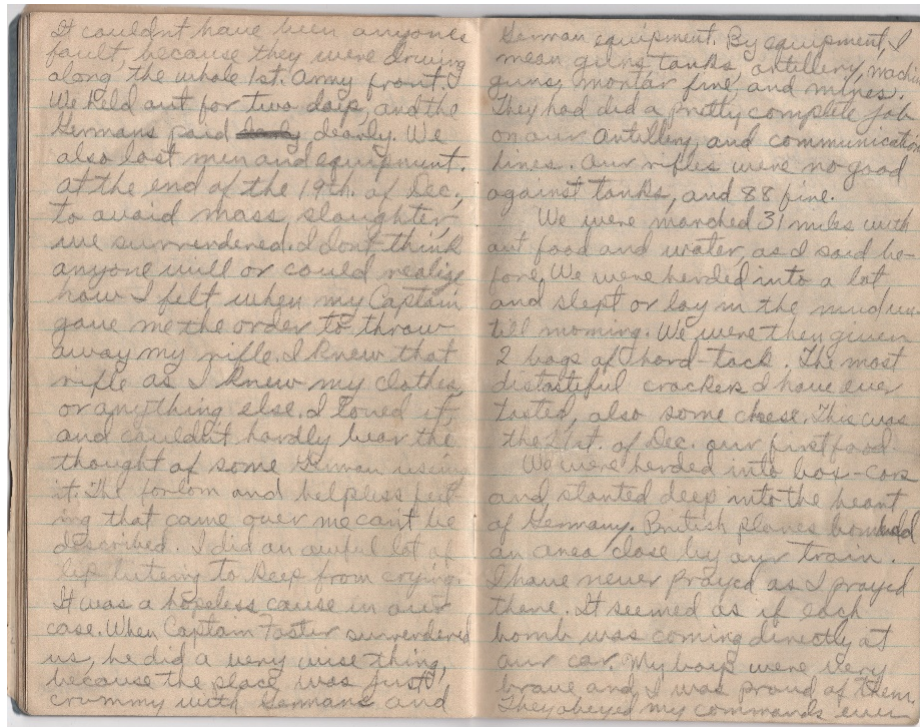 It couldn't have been anyones
fault, because they were driving
along the whole 1st. Army front.
We held out for two days, and the
Germans paid dearly. We
also lost men and equipment.
at the end of the 19th. of Dec.,
to avoid mass slaughter,
we surrendered. I don't think
anyone will or could realize
how I felt when my Captain
gave me the order to throw
away my rifle. I knew that
rifle as I knew my clothes
or anything else. I loved it,
and couldn't hardly bear the
thought of some German using
it. The forlorn and helpless feel-
ing that came over me can't be
described. I did an awful lot of
lip biteing to keep from crying.
It was a hopeless cause in our
case. When Captain Foster surrendered
us, he did a very wise thing,
because the place was just
crummy with Germans and
German equipment. By equipment, I
mean guns, tanks, artillery, machin
guns, mortar fire, and mines.
They had did a pretty complete job
on our artillery, and communication
lines. Our rifles were no good
against tanks, and 88 fire.
We were marched 31 miles with
out food and water, as I said be-
fore. We were herded into a lot,
and slept or lay in the mud un-
till morning. We were they given
2 bags of hard-tack. The most
distasteful crackers I have ever
tasted, also some cheese. This was
the 21st. of Dec. our first food.
We were herded into box-cars
and started deep into the heart
of Germany. British planes bombedd
an area close by our train.
I have never prayed as I prayed
there. It seemed as if each
bomb was coming directly at
our car. My boys were very
brave and I was proud of them
They obeyed my commands even